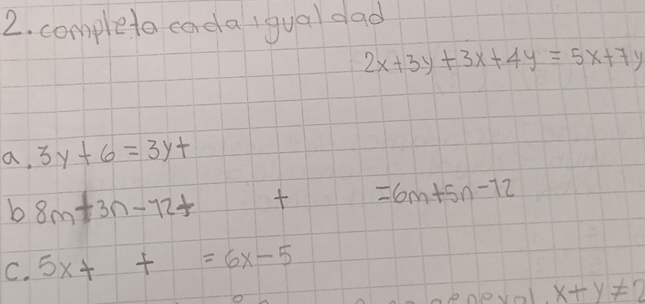 2. completa cada igualdad
2x+3y+3x+4y=5x+7y
a. 3y+6=3y+
b 8m+3n-12+ + =6m+5n-12
c. 5x+ + =6x-5
general x+y≠2